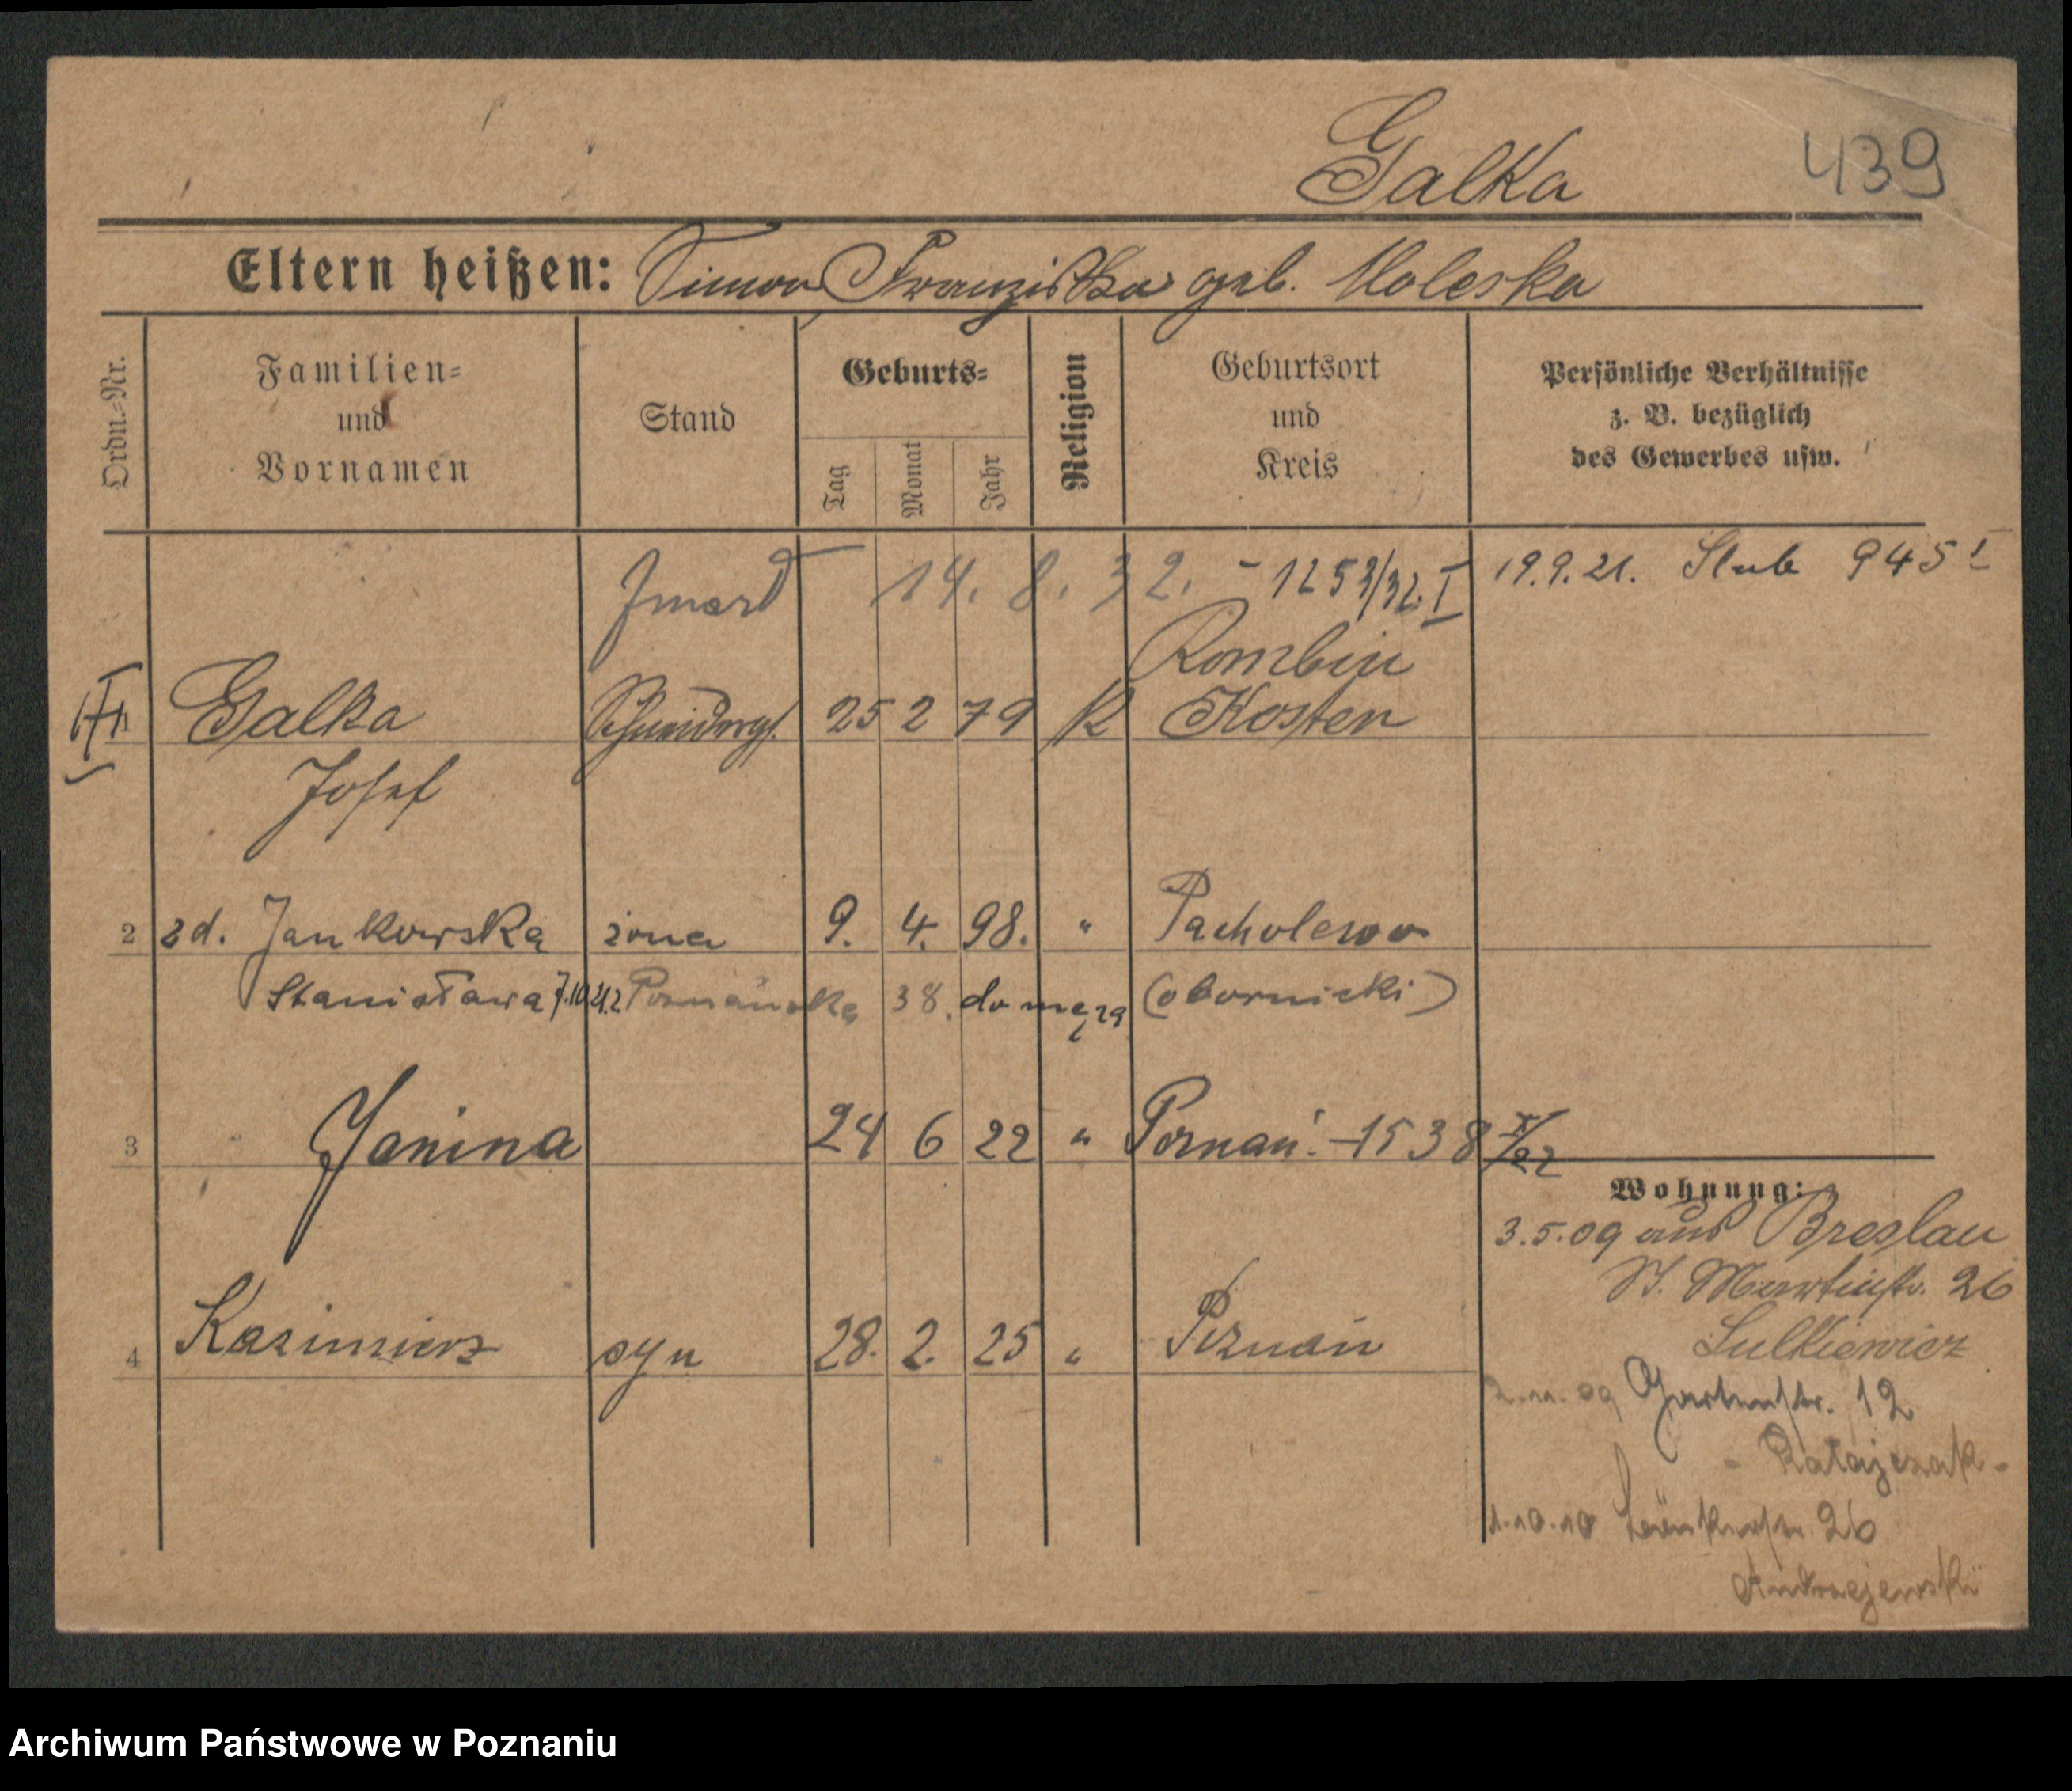 Galka 439
Eltern heißen: Simon Franziska geb. Moleska
Ordn.-Nr.
Familien-
und
Vornamen
Stand
Geburts-
Tag
Monat
Jahr
Religion
Geburtsort
und
Kreis
Persönliche Verhältnisse
z. B. bezüglich
des Gewerbes usw.
Zmarł 14. 8. 32. - 1253/32. I 19.9.21. Slub 945 I
Rombin
Galka 25 2 79 K Kosten
Josef
2 zd. Jankowska żona 9. 4. 98. " Pacholewo
Stanisława 7.10.42 Poznańska 38. do męża (obornicki)
3 Janina 24 6 22 " Poznań. - 1538 X/22
Wohnung:
3.5.09 aus Breslau
St. Martinstr. 26
Sulkiewicz
4 Kazimierz syn 28. 2. 25 " Poznań
2.11.09 Gartenstr. 12
- Ratajczak -
1.10.10 26
Andrzejewski
Archiwum Państwowe w Poznaniu